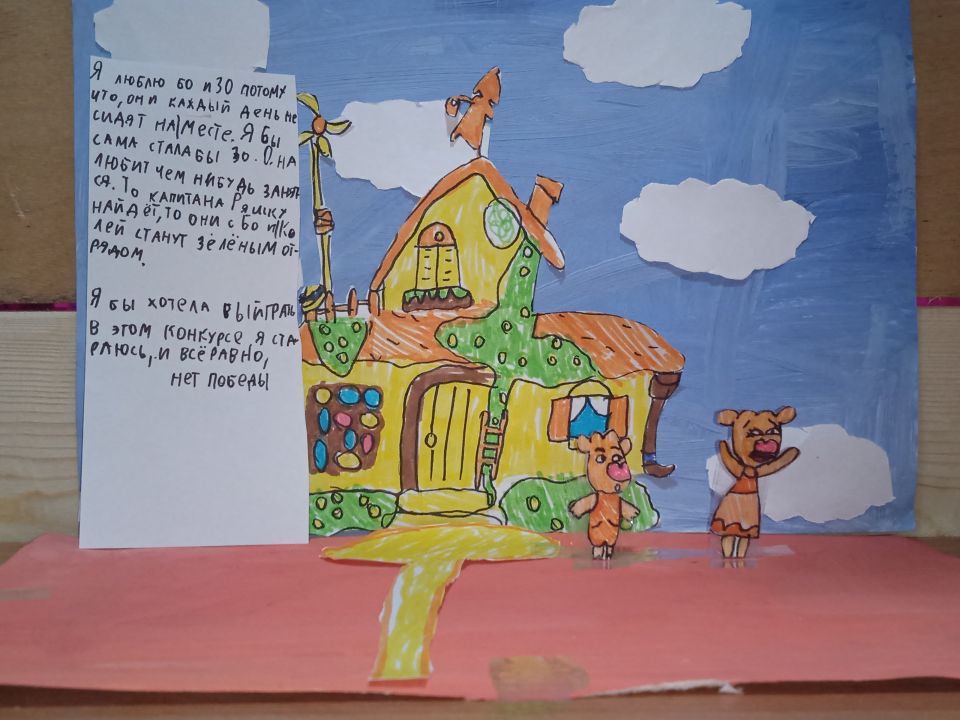 Я люблю бо и зо потому
что, они каждый день не
сидят на месте. Я бы
сама стала бы зо. Она
любит чем нибудь занят
ся. То капитана Ряшку
найдёт, то они с бо и Ко
лей станут зелёным от-
рядом.
Я бы хотела выйграть
в этом конкурсе я ста-
раюсь, и всё равно,
нет победы